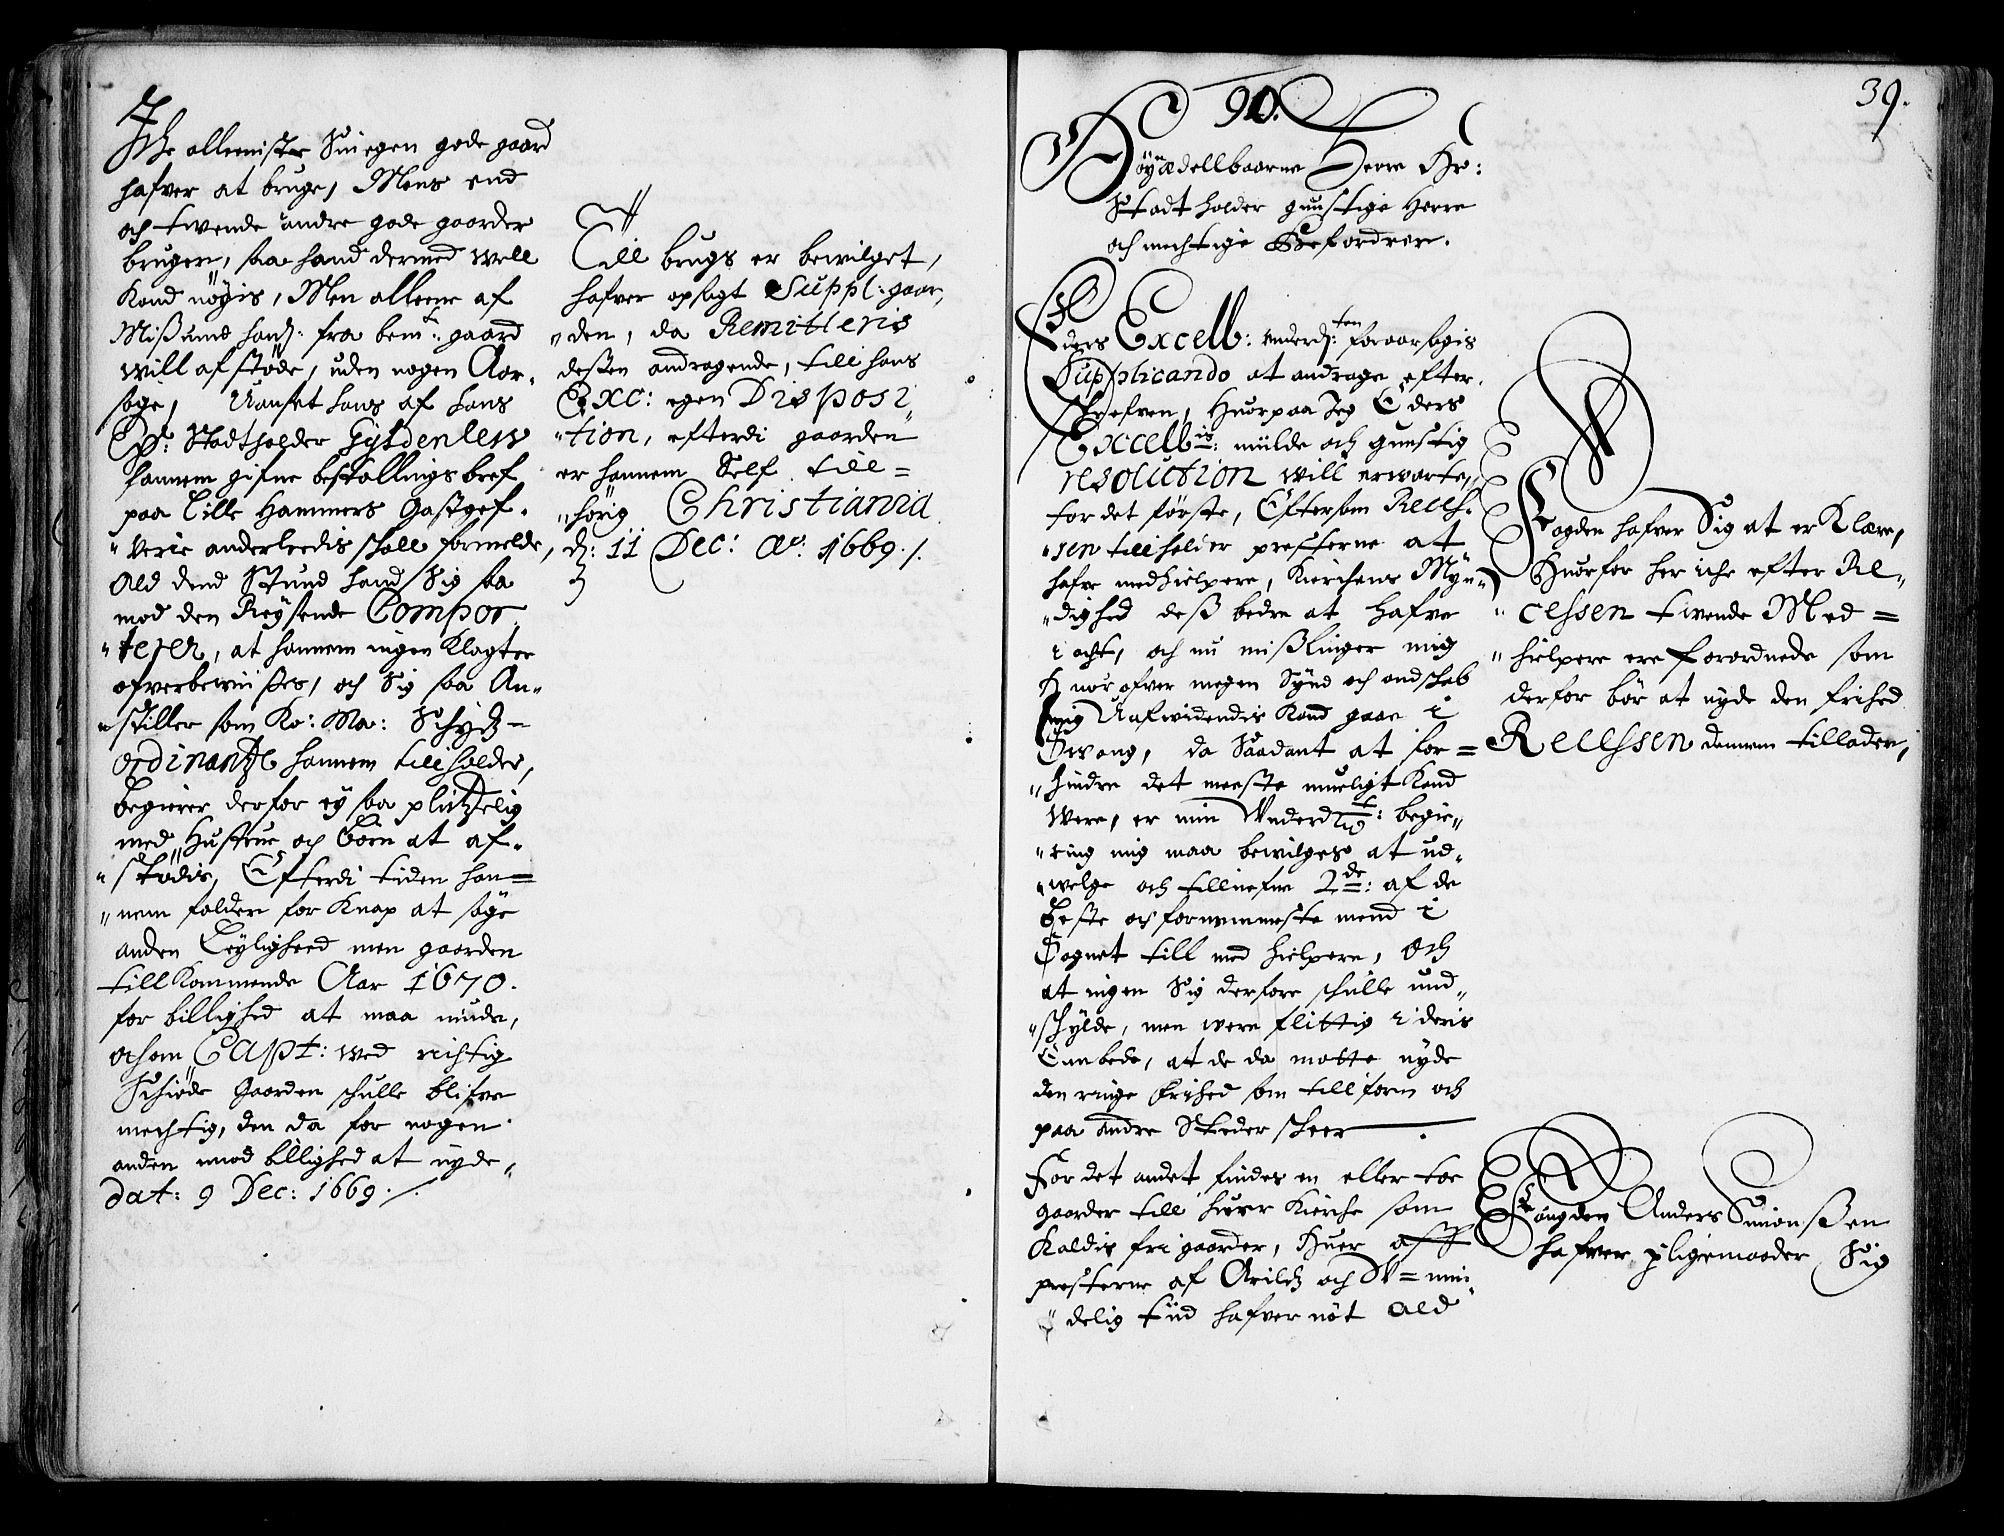 Iche alleeniste Sin egen gode gaard
hafver at bruge, Mens end
och tvende andre gode gaarder
bruger, saa hand dermed well
Kand nöyis, Men alleene af
Mißund hand: fra bemt: gaard
will afstöde, uden nogen Aar,
sage, Uanset hans af hans
Ex: Stadtholder Gyldenlews
hannem gifne bestallings bref
paa Lille Hammers Gastgef,
"verie anderleedis skall formelde,
Ald dend Stund hand Sig saa
mod den Reysende Compor
"terer, at hannem ingen Klagter
ofverbeviises, och Sig saa An"
"stiller som Ko: Ma: Schydtz=
ordinantze hannem tillholder,
begierer derfor ey saa plutzelig
med Hustrue och Börn at af"
"stödis, Efterdi tiden han=
"nem falder for Knap at söge
anden Leyligheed men gaarden
tillkommende Aar 1670.
for billighed at maa niude,
och om Capt: ved richtig
Schiöde Gaarden schulle blifve
mechtig, den da for nogen
anden imod billighed at nyde,
dat: 9 Dec: 1669 ./.
Till brugs er bewilget,
hafver opsagt Suppl: gaar,
"den, da Remitteris
desßen andragende, till hans
Exc: egen Disposi"
"tion, efterdi gaarden
er hannem Self till=
"hörig Christiania
d: 11 Dec: Ao. 1669 ./.
39.
90.
Höyædellbaarne Herre Hr:
Stadtholder gunstige Herre
och mechtige Befordrere.
Eders Excell: underd:ten foraarsagis
Supplicando at andrage efter,
skrefven, Huorpaa Jeg Eders
Excellis: milde och gunstig
resolution will erwarte,
For det förste, Eftersom Recess.
"sen tillholder presterne at
hafve medhielpere, Kierchens Myn"
"dighed deß bedre at hafve
i acht, och nu mißlinger mig
H nor ofver megen Synd och ondskab
mig Uafvidendis Kand gaae i
Svang, da Saadant at for=
"hindre det meeste mueligt Kand
Were, er min Underdtig: begie"
"ring mig maa bewilges at ud"
"welge och tillnefne 2de: af de
beste och fornemmeste mend i
Sognet till med hielpere, Och
at ingen Sig derfore schulle und"
"schylde, men were flittig i deris
Embede, at de da motte nyde
den ringe frihed som tillforn och
paa andre Steder skeer
For det andet findes en eller toe
gaarder till huer Kirche som
Kaldis frigaarder, Huer aff
presterne af Arildz och W=min"
"delig tiid hafver nöt Ald
Fogden hafver Sig at erklære,
Huorfor her iche efter Re"
"cessen tvende Med=
"hielpere ere forordnede som
derfor bör at nyde den frihed
Recessen dennem tillader,
Fougden Anders Simonßen
hafver j ligemaader Sig